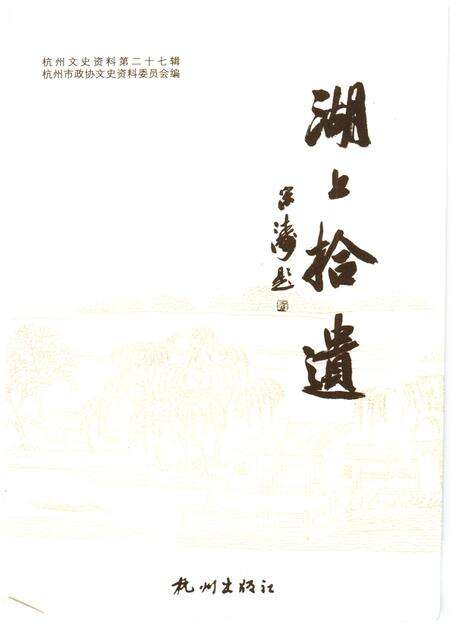 杭州文史资料第二十七辑
杭州市政协文史资料委员会编
湖上拾遗
宋涛题
杭州出版社